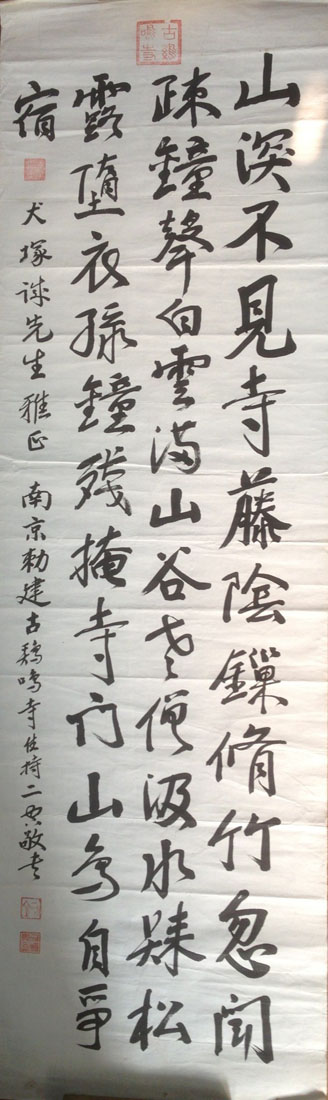 古鷄鳴寺
山深不見寺藤陰鏁脩竹忽聞
疎鐘聲白雲満山谷老僧汲水歸松
露堕衣緑鐘残掩寺门山鳥自爭
宿
犬塚誠先生雅正 南京勅建古鷄鳴寺住持二空敬書